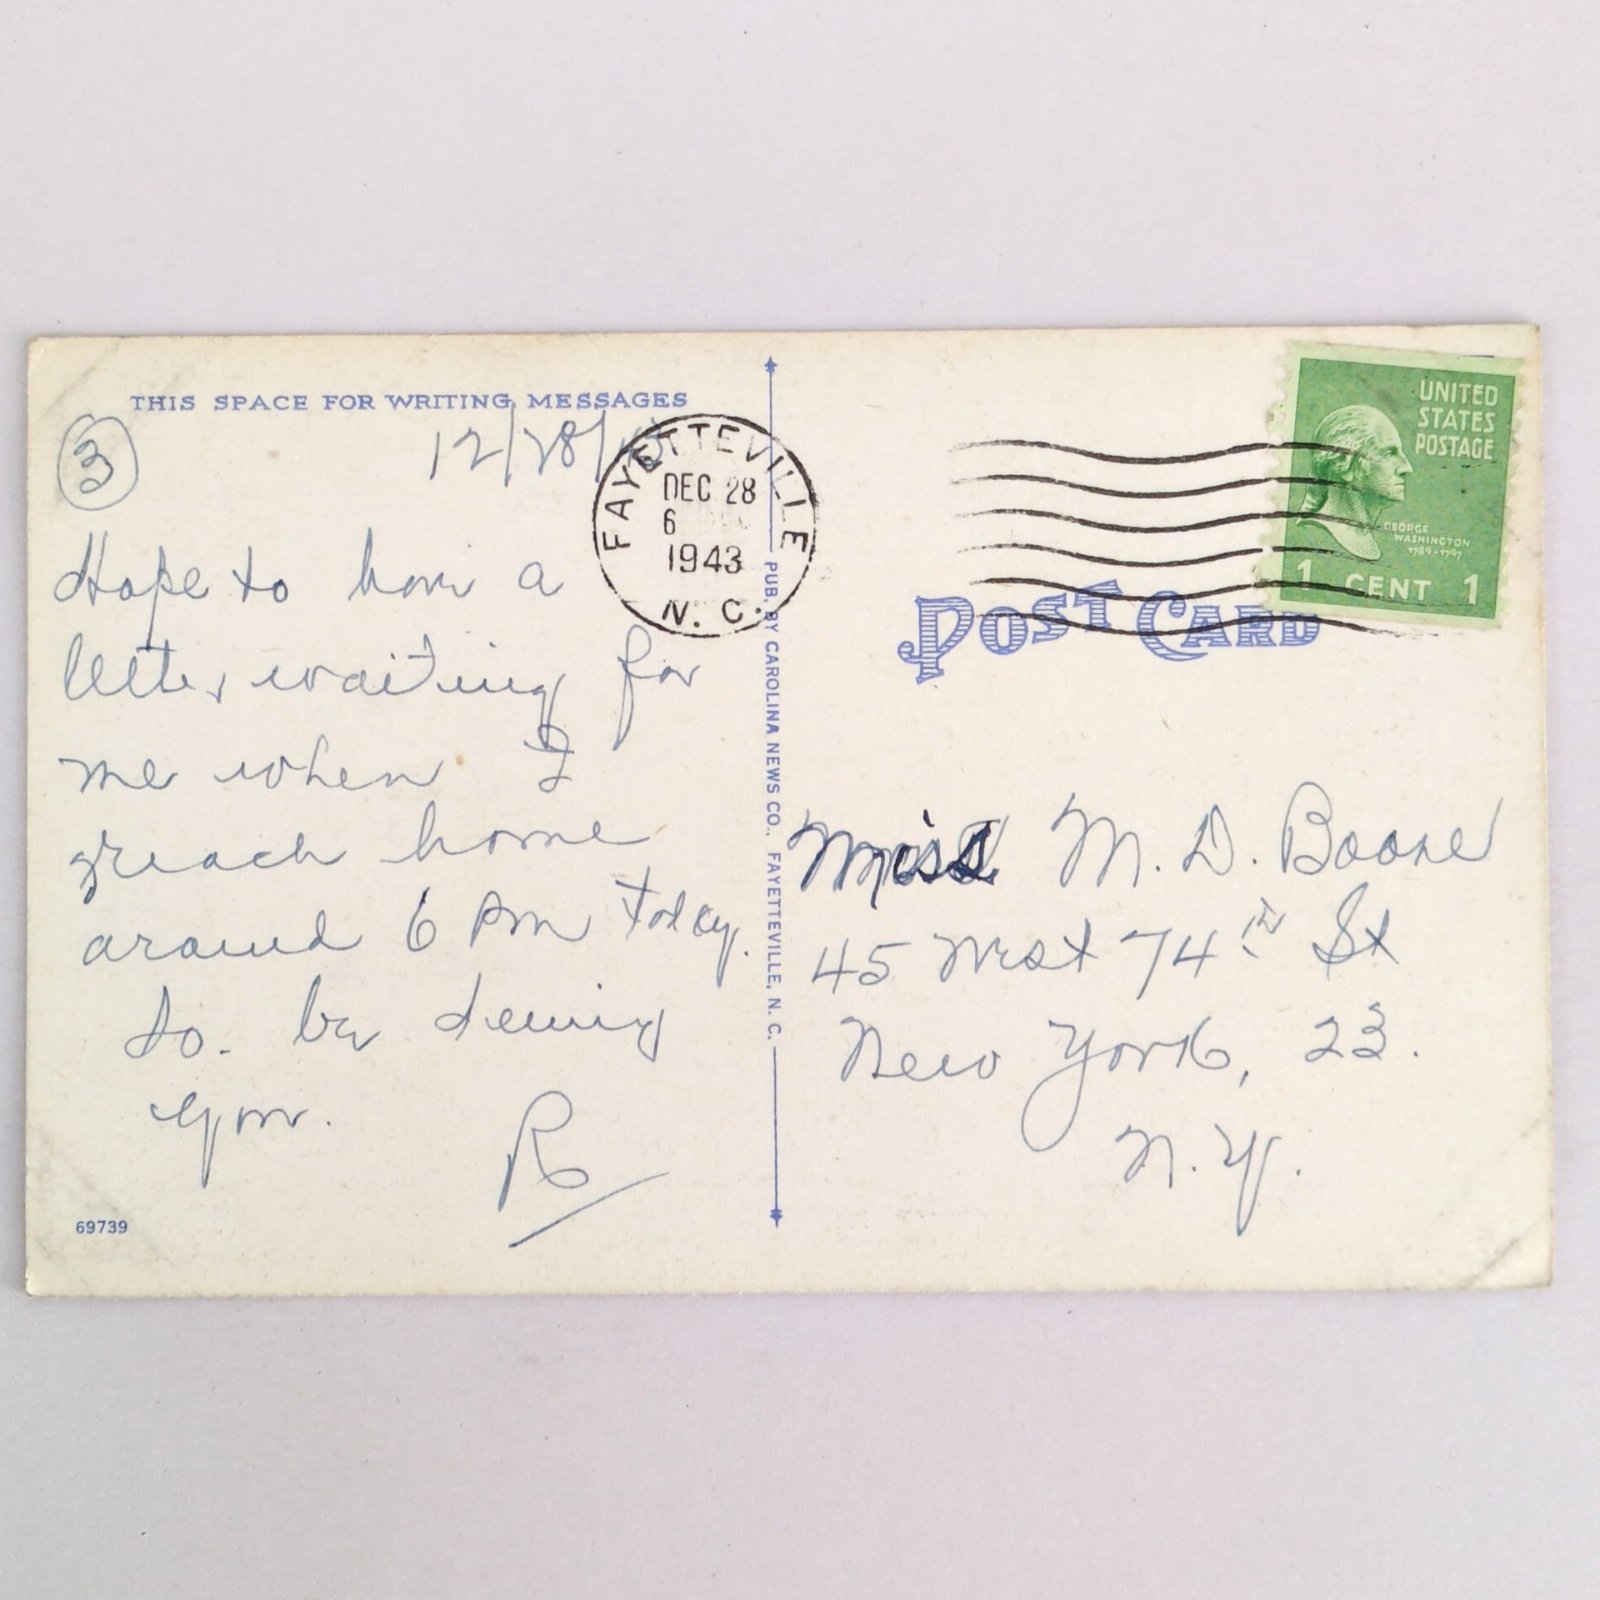 THIS SPACE FOR WRITING MESSAGES
3
12/28/
Hope to have a
letter waiting for
me when I
reach home
around 6 PM today.
So. be seeing
you.
R
69739
FAYETTEVILLE
DEC 28
6
1943
N. C.
PUB. BY CAROLINA NEWS CO., FAYETTEVILLE, N. C.
UNITED
STATES
POSTAGE
GEORGE
WASHINGTON
1789-1797
1 CENT 1
POST CARD
Miss M. D. Boone
45 West 74th St
New York, 23.
N.Y.